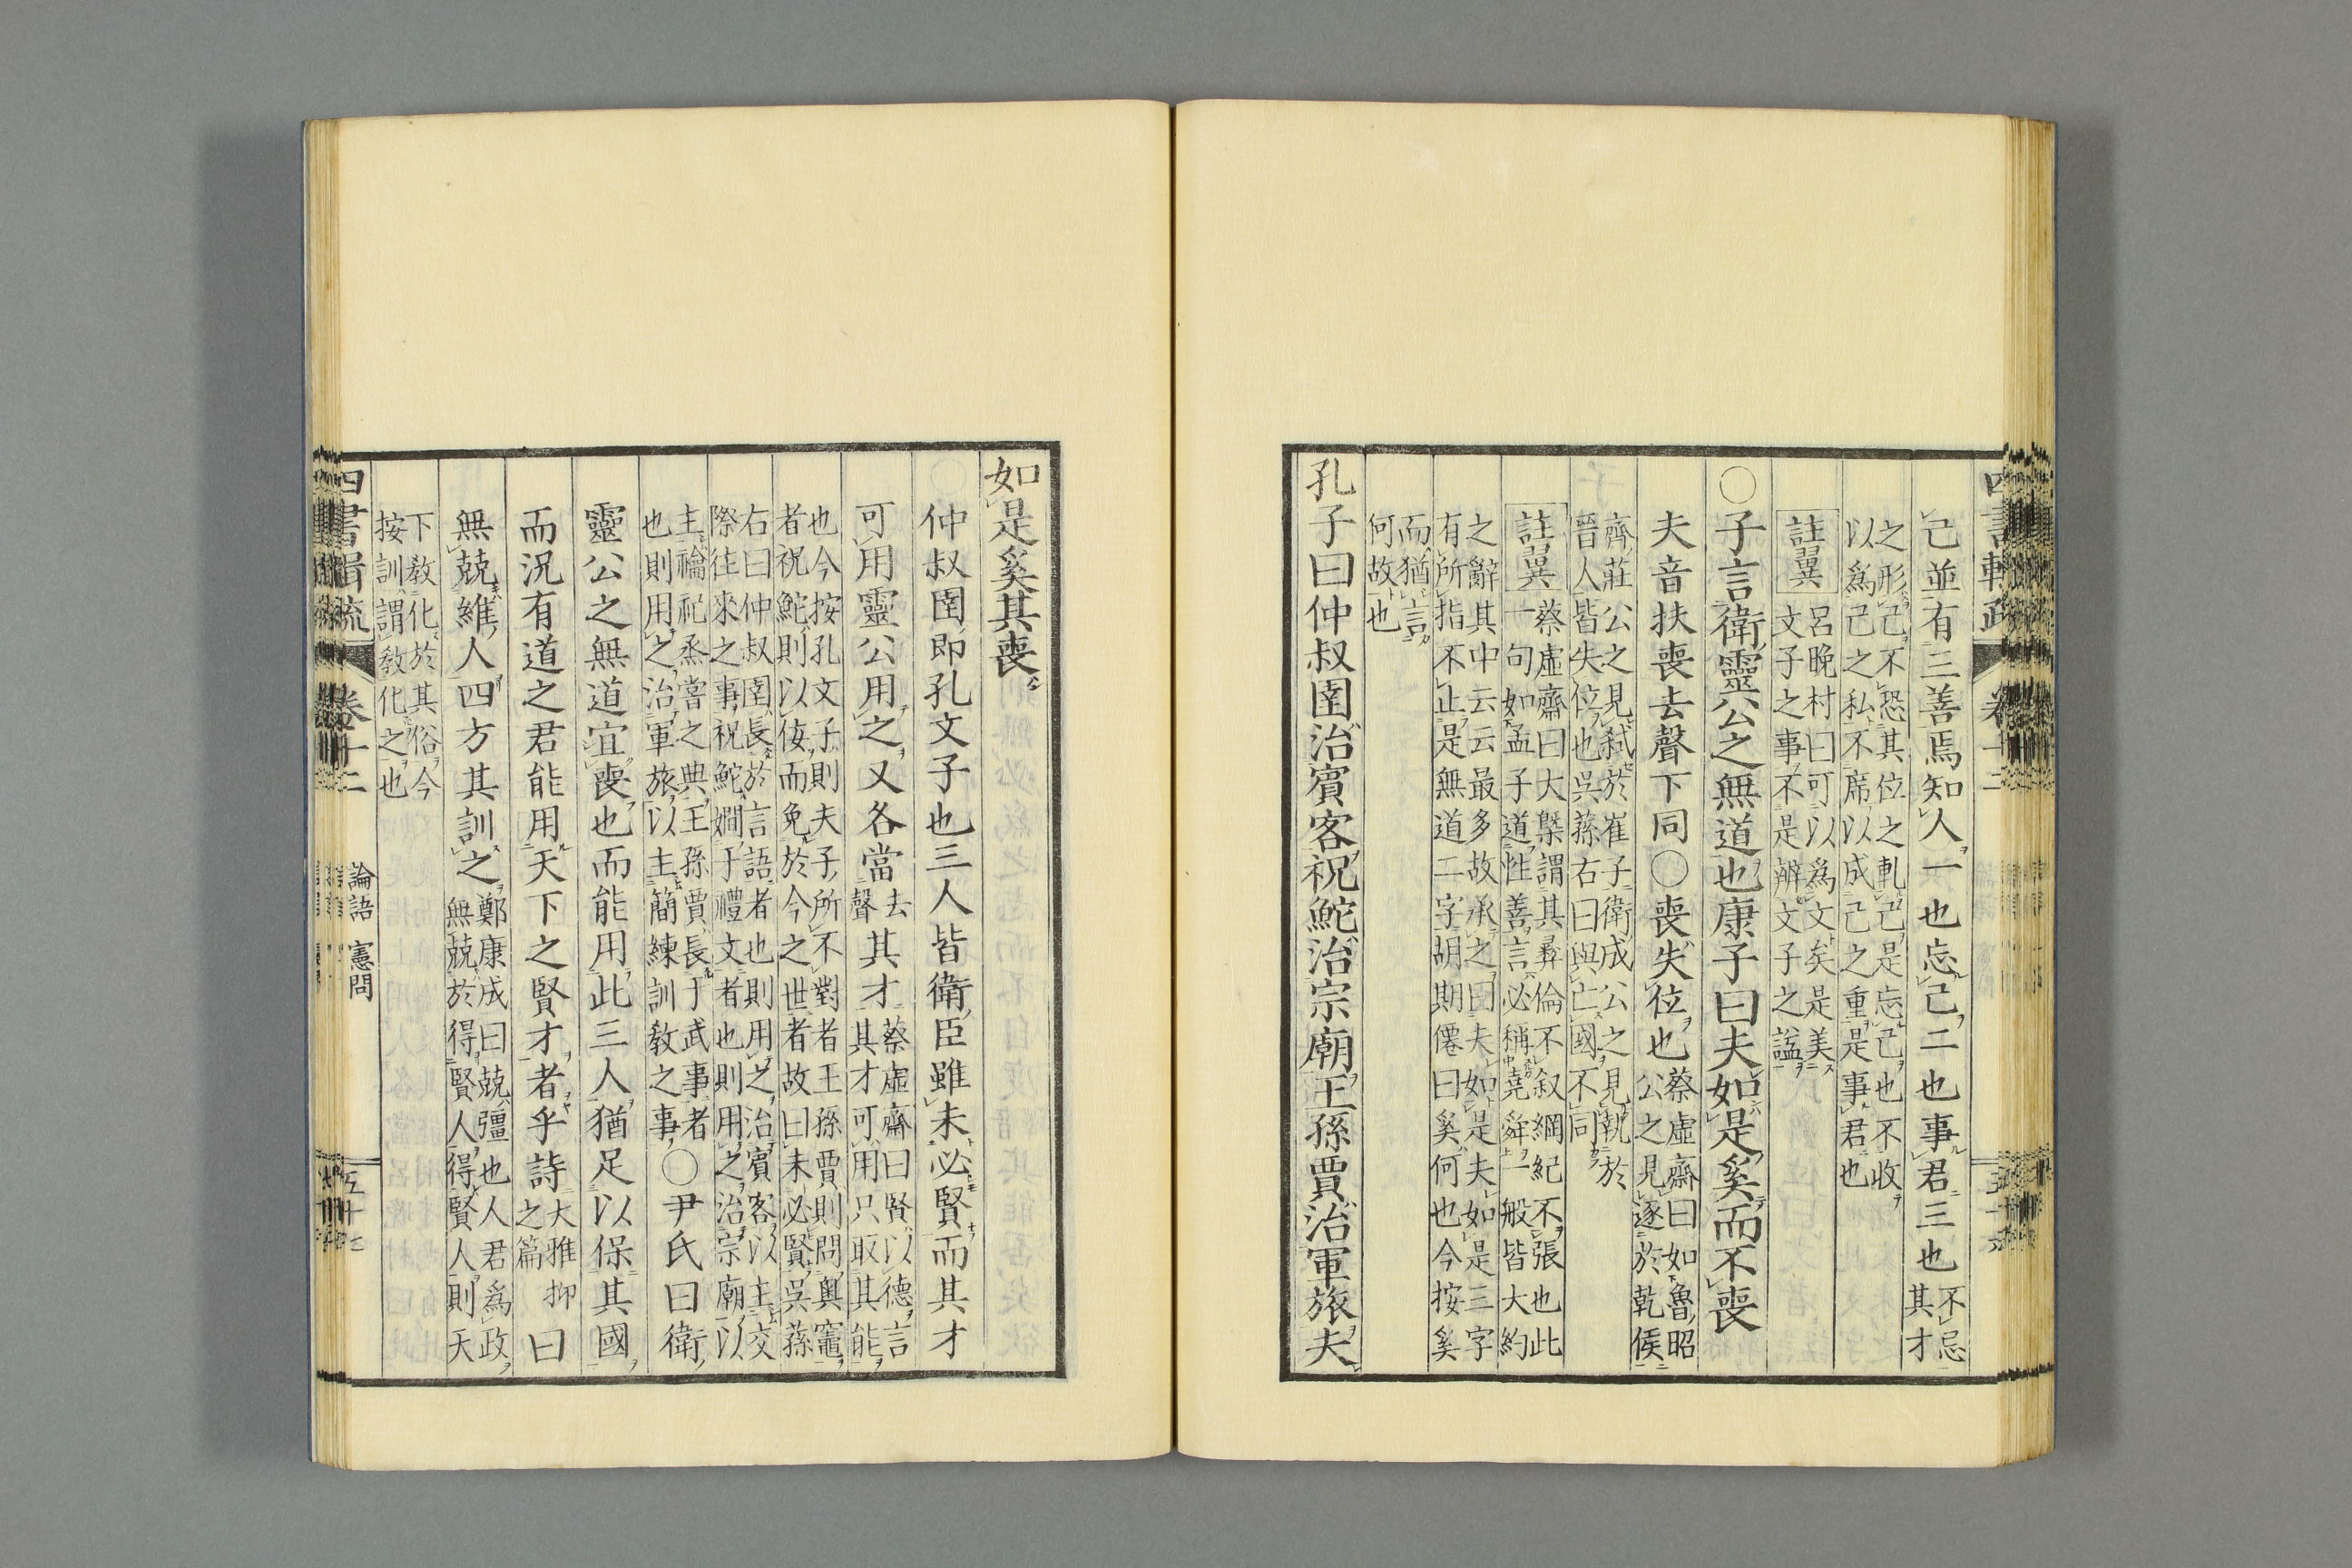 己並有三善焉知人一也忘己二也事君三也不忌其才
之形己不恐其位之軋己是忘己也不收
以爲己之私不席以成己之重是事君也
註翼 呂晚村曰可以爲文矣是美
文子之事不是辨文子之諡
○子言衛靈公之無道也康子曰夫如是奚而不喪
夫音扶喪去聲下同○喪失位也蔡虛齋曰如魯昭公之見逐於乾侯
齊莊公之見弑於崔子衛成公之見執於
晉人皆失位也吳蓀右曰與亡國不同
註翼 蔡虛齋曰大槩謂其彝倫不叙綱紀不張也此
一句如孟子道性善言必稱堯舜一般皆大約
之辭其中云云最多故承之曰夫如是夫如是三字
有所指不止是無道二字胡期僊曰奚何也今按奚
而猶言
何故也
孔子曰仲叔圉治賓客祝鮀治宗廟王孫賈治軍旅夫
如是奚其喪
仲叔圉即孔文子也三人皆衛臣雖未必賢而其才
可用靈公用之又各當去聲其才蔡虛齋曰賢以德言其才可用只取其能
也今按孔文子則夫子所不對者王孫賈則問奧竈
者祝鮀則以佞而免於今之世者故曰未必賢吳蓀
右曰仲叔圉長於言語者也則用之治賓客以主交
際往來之事祝鮀嫺于禮文者也則用之治宗廟以
主禴祀烝嘗之典王孫賈長于武事者
也則用之治軍旅以主簡練訓教之事○尹氏曰衛
靈公之無道宜喪也而能用此三人猶足以保其國
而況有道之君能用天下之賢才者乎詩大雅抑之篇曰
無兢維人四方其訓之鄭康成曰兢彊也人君爲政無兢於得賢人得賢人則天
下教化於其俗今
按訓謂教化之也
四書輯疏 卷十二 論語 憲問 五十七